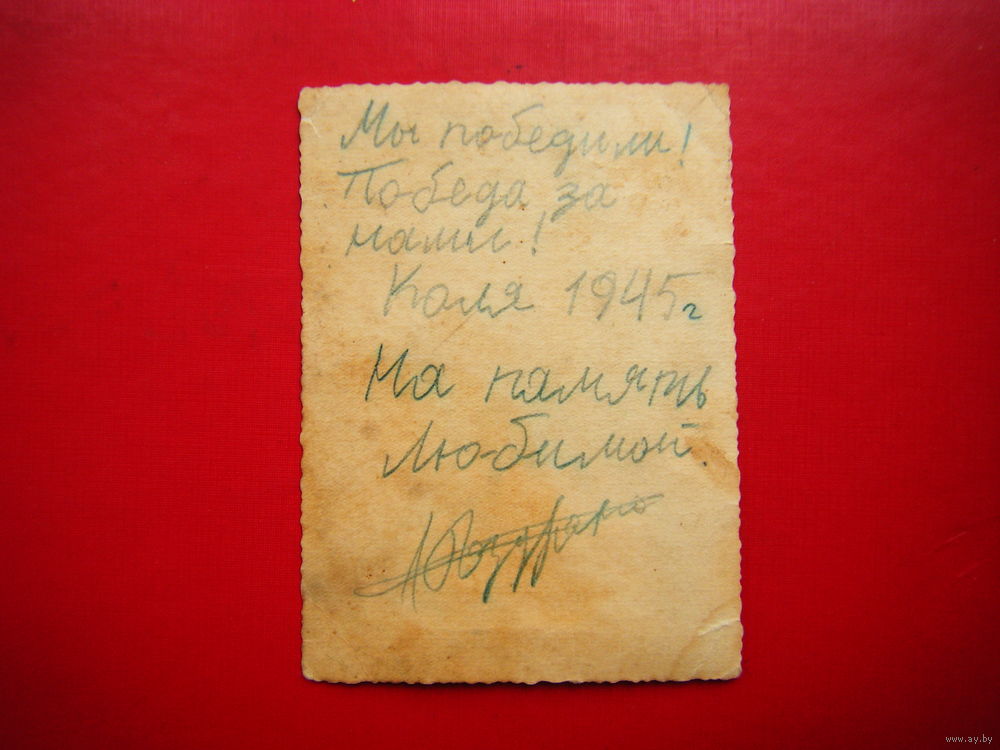 Мы победили!
Победа за
нами!
Коля 1945г
На память
любимой.
www.ay.by